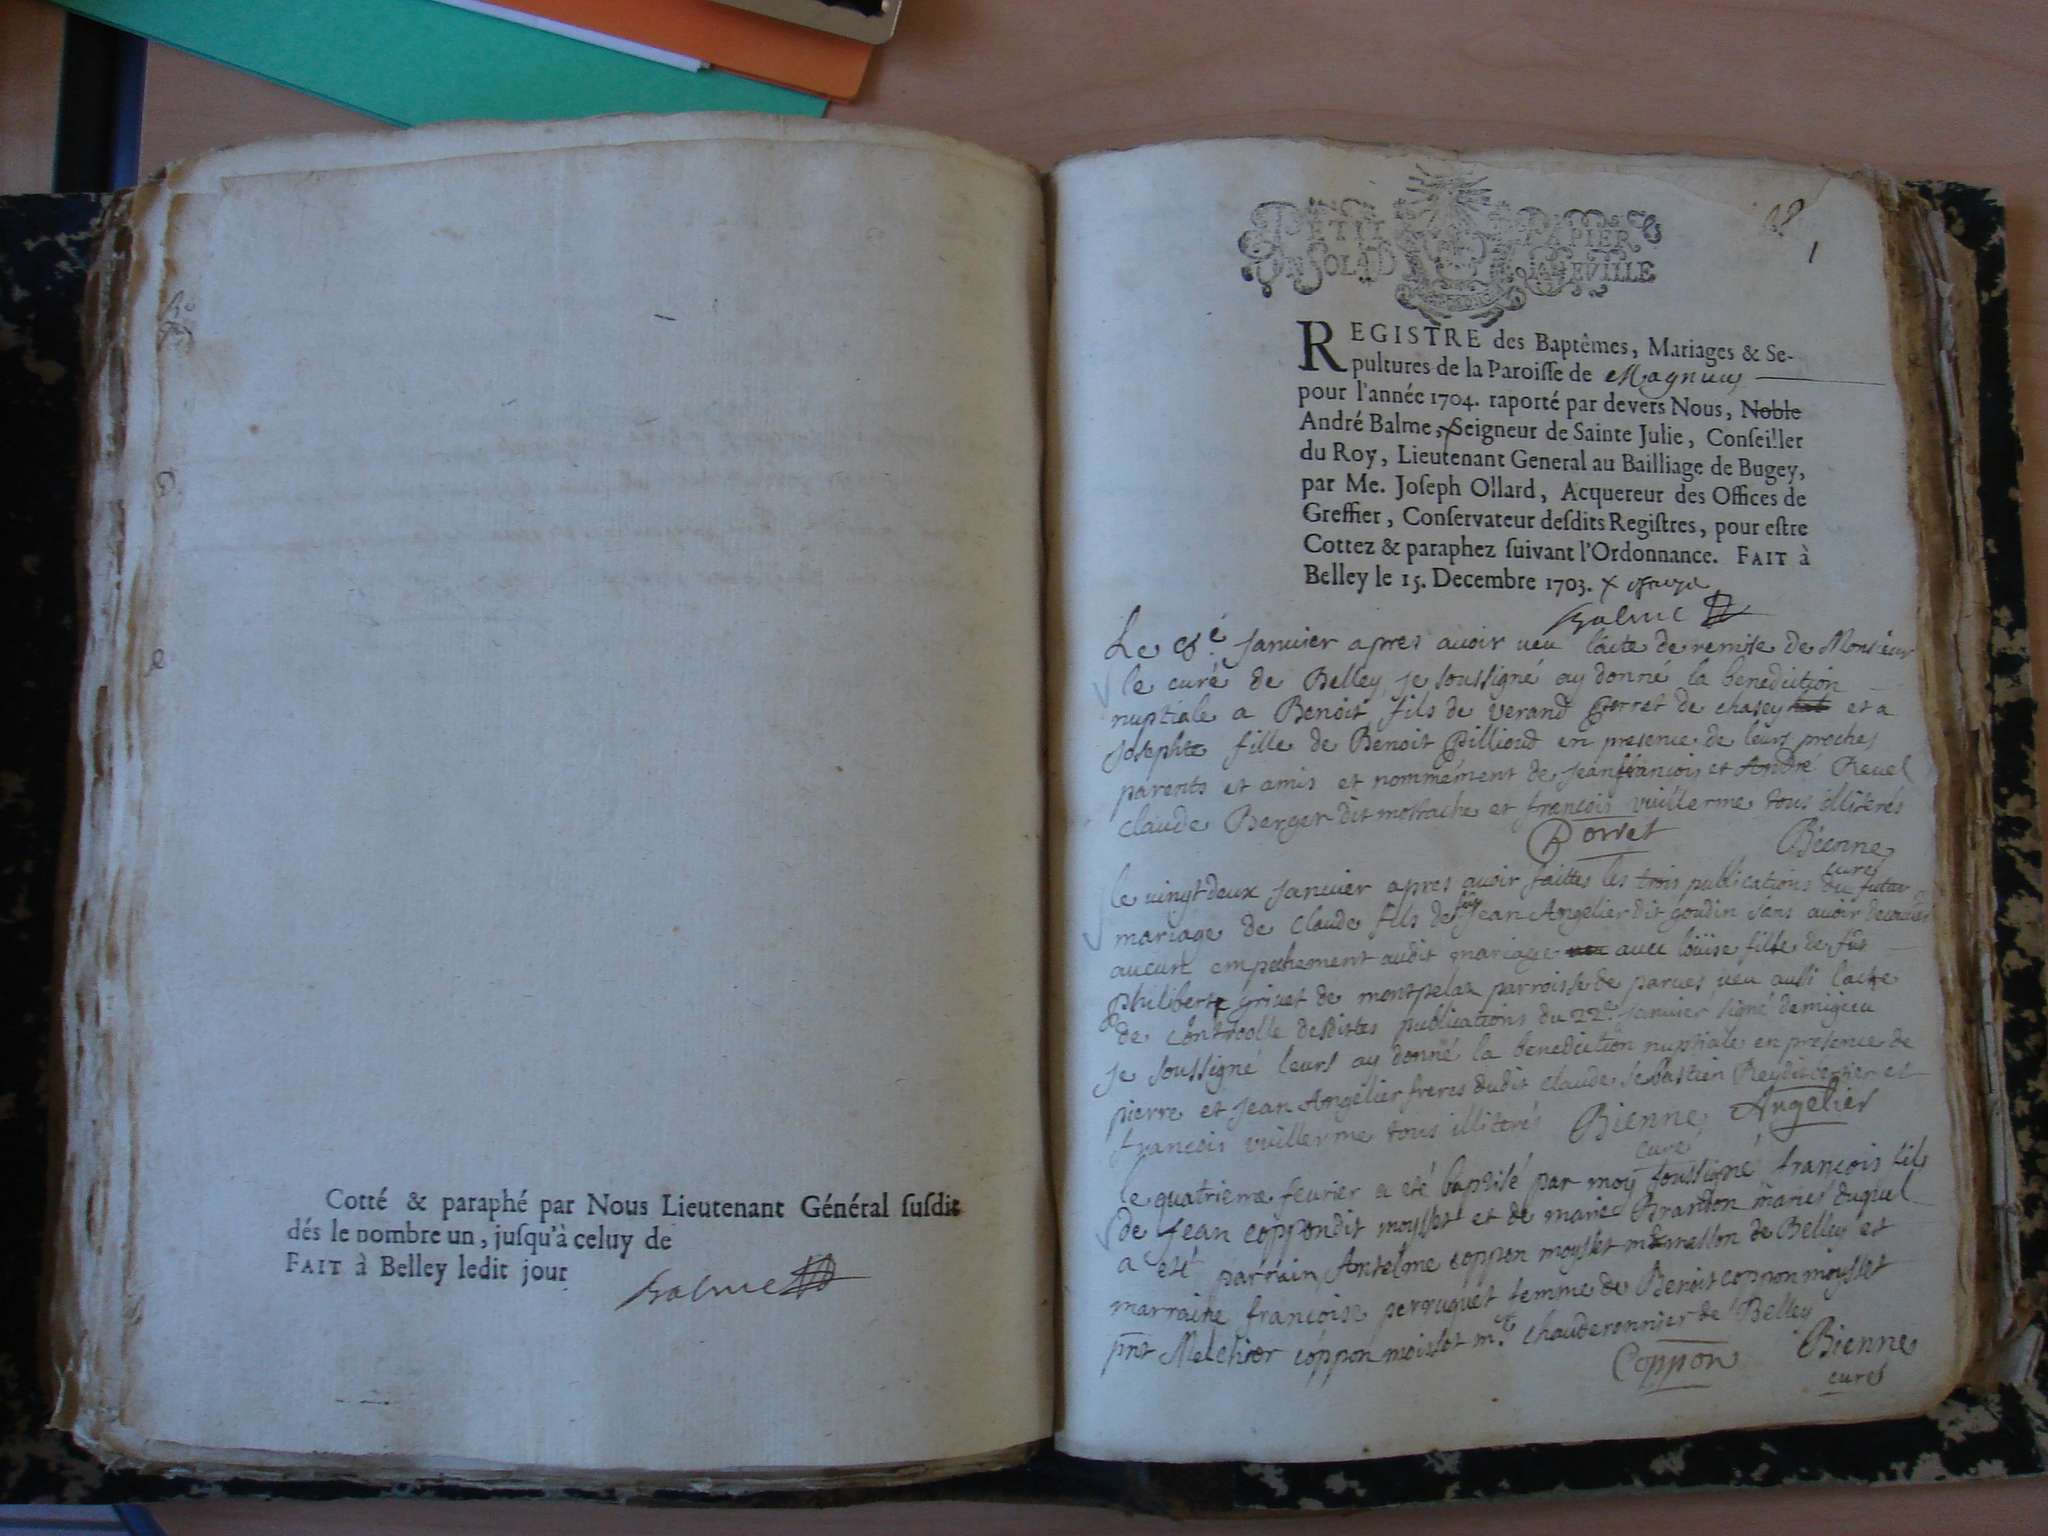 Cotté & paraphé par Nous Lieutenant Général susdit
dés le nombre un, jusqu'à celuy de
FAIT à Belley ledit jour
Balme
PETIT PAPIER
1
REGISTRE des Baptêmes, Mariages & Se-
pultures de la Paroisse de Magnieu
pour l'année 1704. raporté par devers Nous, Noble
André Balme, x Seigneur de Sainte Julie, Conseiller
du Roy, Lieutenant General au Bailliage de Bugey,
par Me. Joseph Ollard, Acquereur des Offices de
Greffier, Conservateur desdits Registres, pour estre
Cottez & paraphez suivant l'Ordonnance. FAIT à
Belley le 15. Decembre 1703. x
Balme
Le 8e Janvier apres avoir veu l'acte de remise de Monsieur
le curé de Belley je soussigné ay donné la benediction
nuptiale a Benoit fils de verand Porret de chasey et a
Josephte fille de Benoit Pillioud en presence de leurs proches
parents et amis et nommément de Jeanfrancois et André Revel
claude Berger dit mostache et francois vuillerme tous illiterés
Porret Bienne
curé
le vingt deux Janvier apres avoir faittes les trois publications du futur
mariage de Claude fils de feu Jean Angelier dit goudin sans avoir
aucun empechement audit mariage avec loüise fille de fût
philiberte grivet de montpelaz parroisse de parves veu aussi l'acte
de controolle desdittes publications du 22e Janvier signé demigieu
Je soussigné leurs ay donné la benediction nuptiale en presence de
pierre et Jean Angelier freres dudit claude, Sebastien Rey dit et
francois vuillerme tous illiterés Bienne Angelier
curé
le quatrieme fevrier a été baptisé par moy soussigné francois fils
de Jean coppon dit moysset et de marie Brandon mariés duquel
a eté parrain Anselme coppon moysset masson de Belley et
marraine francoise perruquet femme de Benoit coppon moysset
pnt Melchior coppon moisset mre chauderonnier de Belley
Coppon Bienne
curé